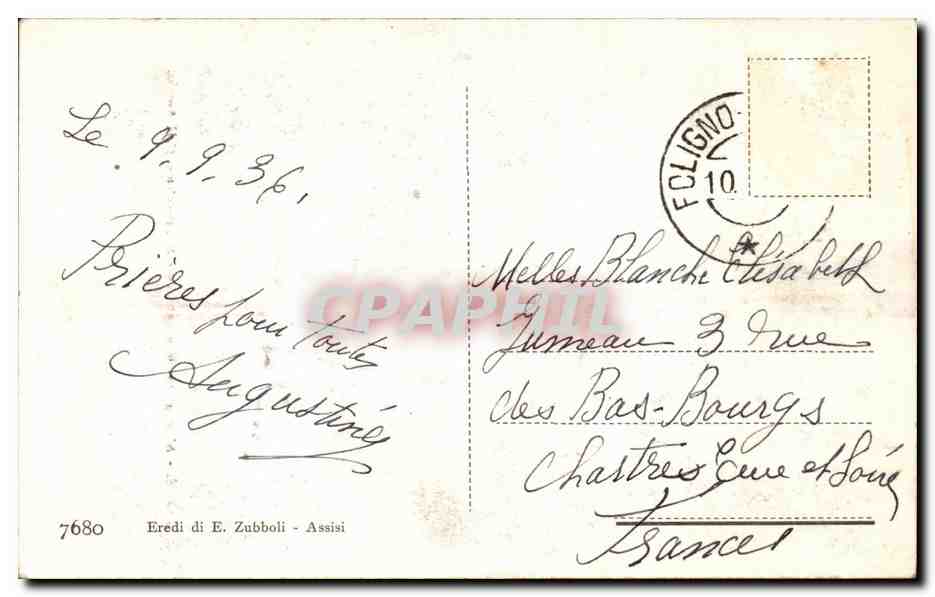 Le 9.9.36.
Prières pour toutes
Augustine
7680
Eredi di E. Zubboli - Assisi
FOLIGNO
10.
Melles Blanche Elisabeth
Jumeau 3 rue
des Bas-Bourgs
Chartres Eure et Loire
France
CPAPHIL